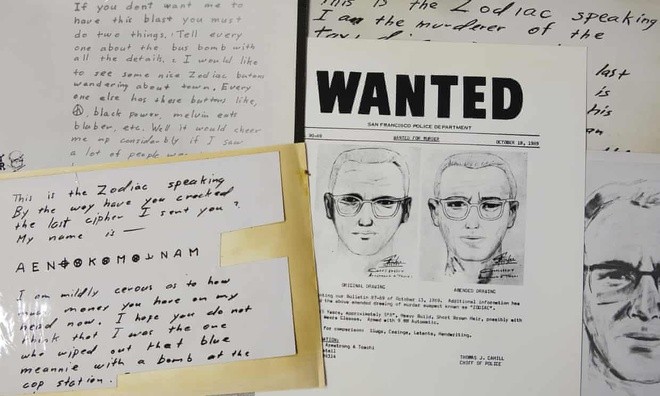 If you don't want me to
have this blast you must
do two things. Tell every
one about the bus bomb with
all the details. 2 I would like
to see some nice Zodiac butons
wandering about town. Every
one else has these buttons like,
☮, black power, melvin eats
bluber, etc. Well it would cheer
me up considerbly if I saw
a lot of people
This is the Zodiac speaking
By the way have you cracked
the last cipher I sent you?
My name is —
AEN⌖⊗K⊗M⊗⅃NAM
I am mildly cerous as to how
much money you have on my
head now. I hope you do not
think that I was the one
who wiped out that blue
meannie with a bomb at the
cop station.
This is the Zodiac speaking
I am the murderer of the
last
is
his
WANTED
SAN FRANCISCO POLICE DEPARTMENT
90-69 WANTED FOR MURDER OCTOBER 18, 1969
ORIGINAL DRAWING AMENDED DRAWING
our Bulletin 87-69 of October 13, 1969. Additional information has
the above amended drawing of murder suspect known as "ZODIAC".
Years, approximately 5'8", Heavy Build, Short Brown Hair, possibly with
Glasses. Armed with 9 MM Automatic.
for comparison: Slugs, Casings, Latents, Handwriting.
Armstrong & Toschi
THOMAS J. CAHILL
CHIEF OF POLICE